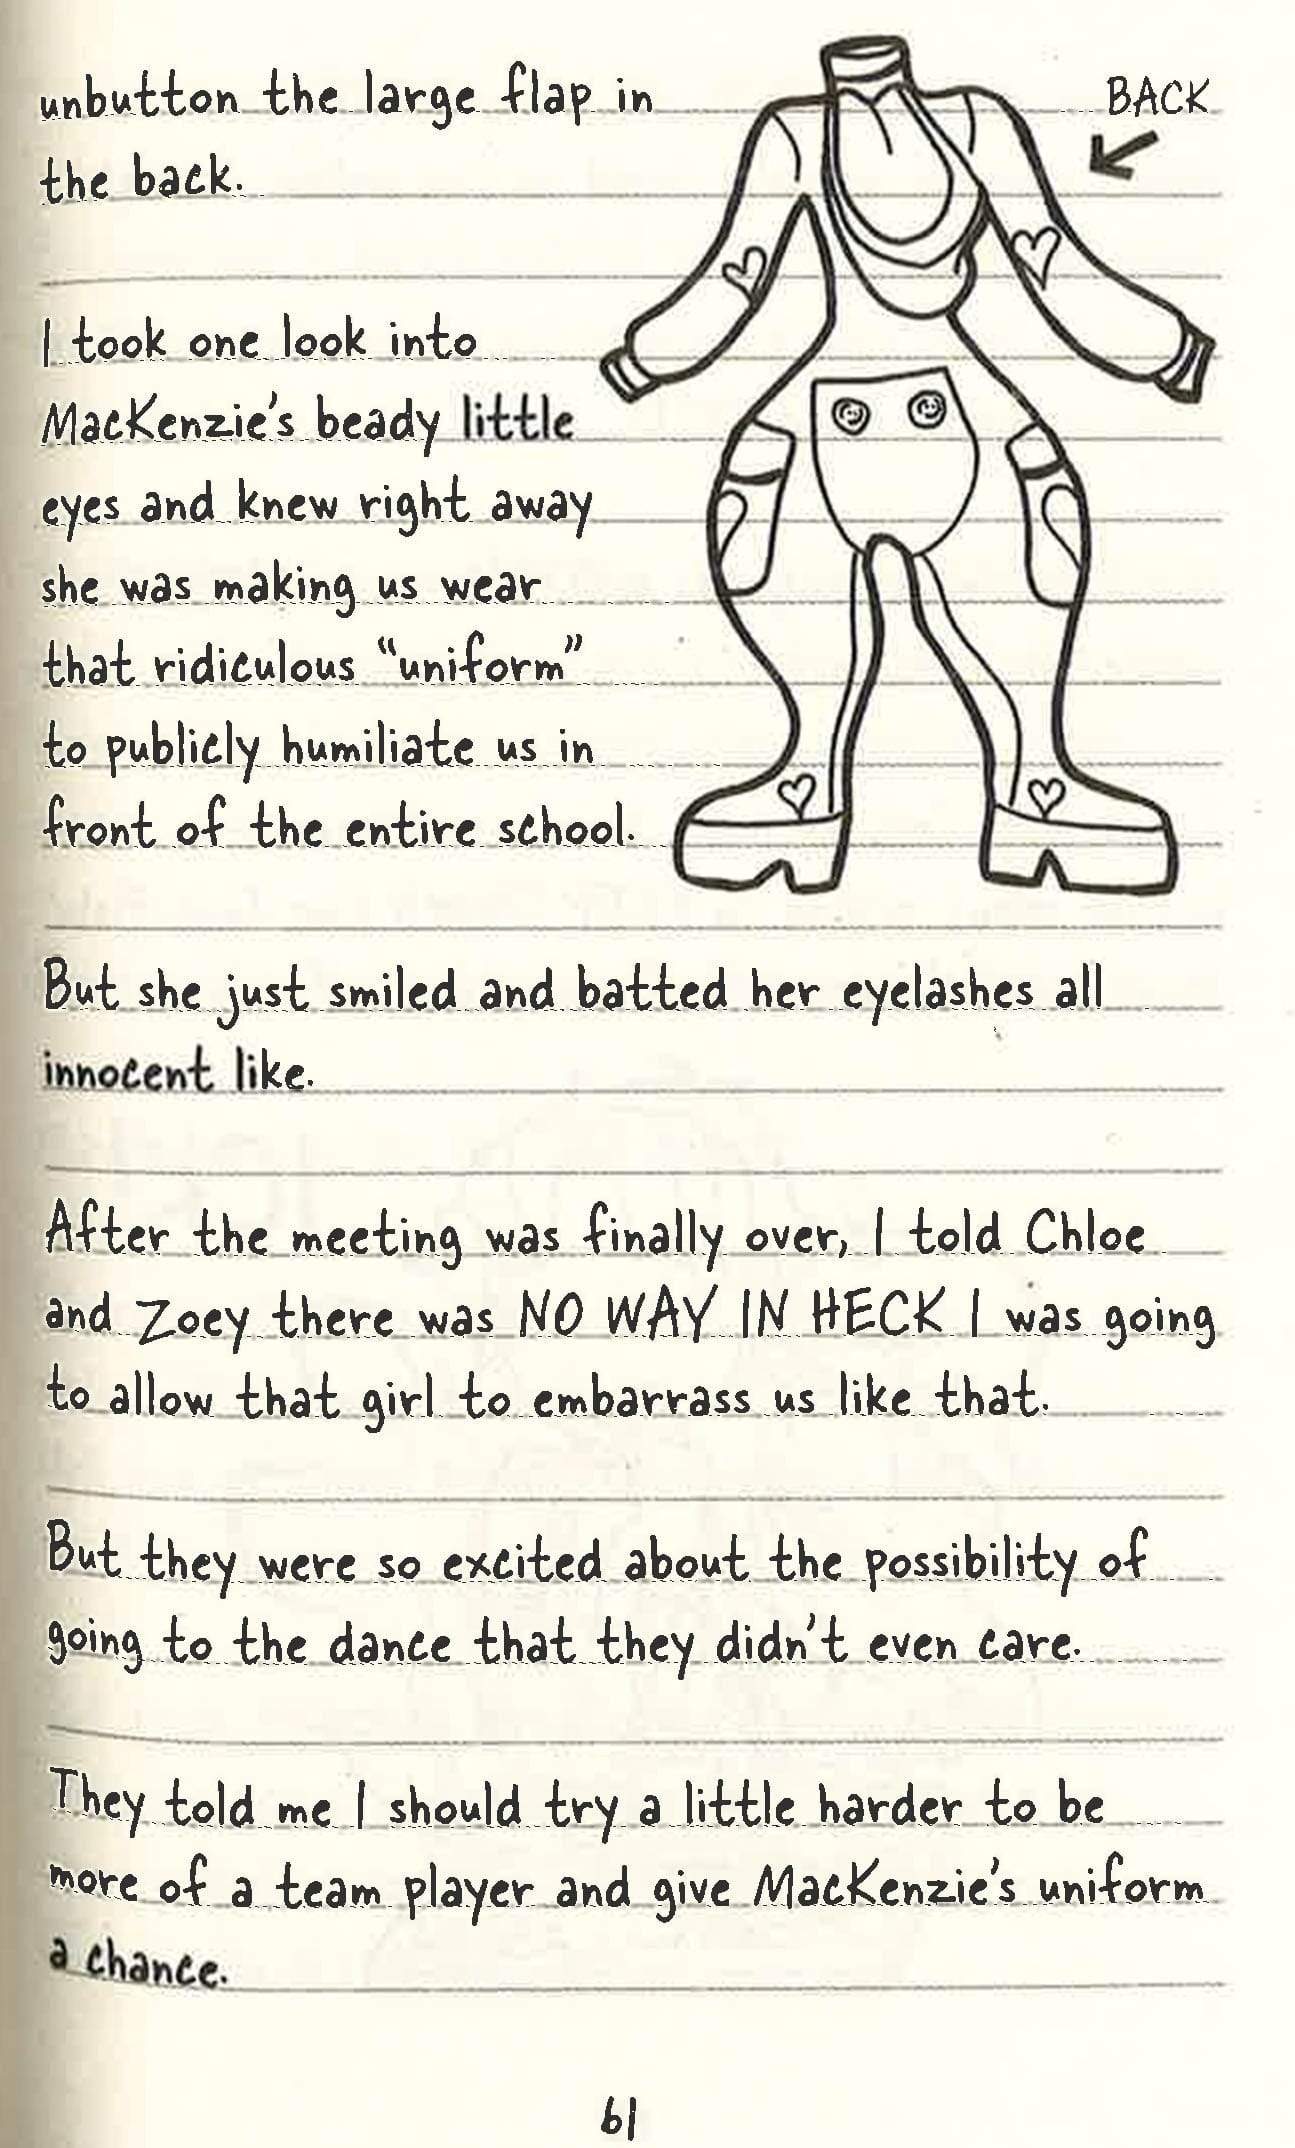 unbutton the large flap in
BACK
the back.
I took one look into
MacKenzie's beady little
eyes and knew right away
she was making us wear
that ridiculous “uniform”
to publicly humiliate us in
front of the entire school.
But she just smiled and batted her eyelashes all
innocent like.
After the meeting was finally over, I told Chloe
and Zoey there was NO WAY IN HECK I was going
to allow that girl to embarrass us like that.
But they were so excited about the possibility of
going to the dance that they didn't even care.
They told me I should try a little harder to be
more of a team player and give MacKenzie's uniform
a chance.
61